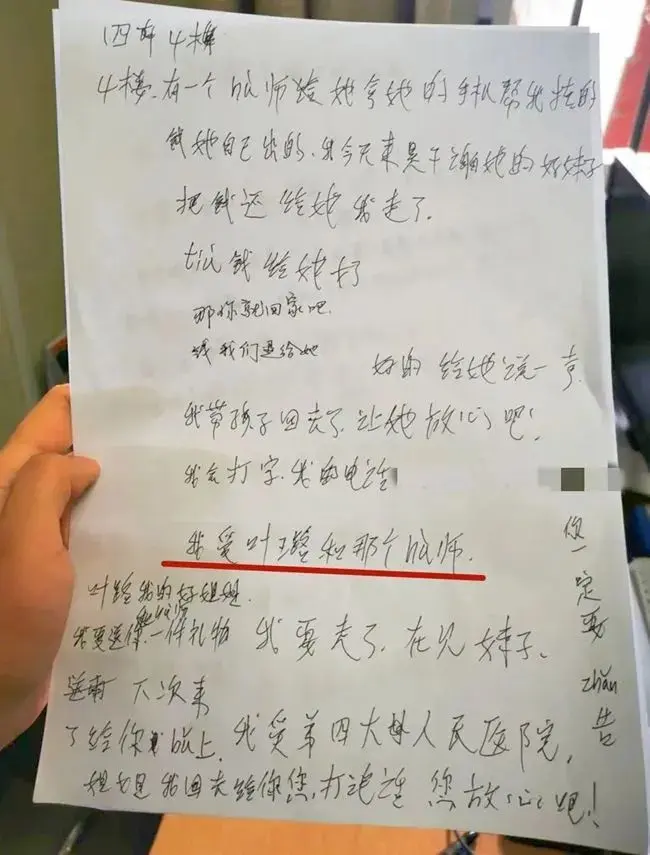 4楼.有一个hu师给她拿她的手机帮我挂的
钱她自己出的.我今天来是干谢她的好妹子
把钱还给她我走了.
钱给她了
那你就回家吧.
钱我们退给她
好的 给她说一声.
我带孩子回去了.让她放心吧!
我会打字.我的电话
我爱叶璐和那个hu师.
叶璐我的好姐姐.
我要送你一件礼物 我要走了.在见妹子.
下次来
了给你 上.我爱第四大 人民医院,
姐 我回去给你您,打电话 您放心吧!
您一定要 zhāu告